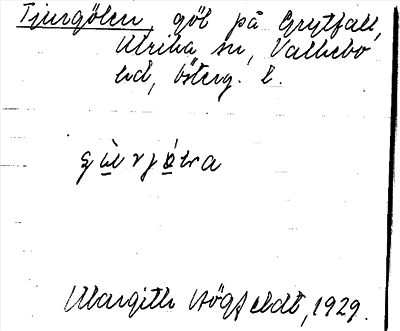 Tjurgölen, göl på Grytfall,
Ulrika sn, Valkebo
hd, Österg. l.
Margith Högfeldt, 1929.